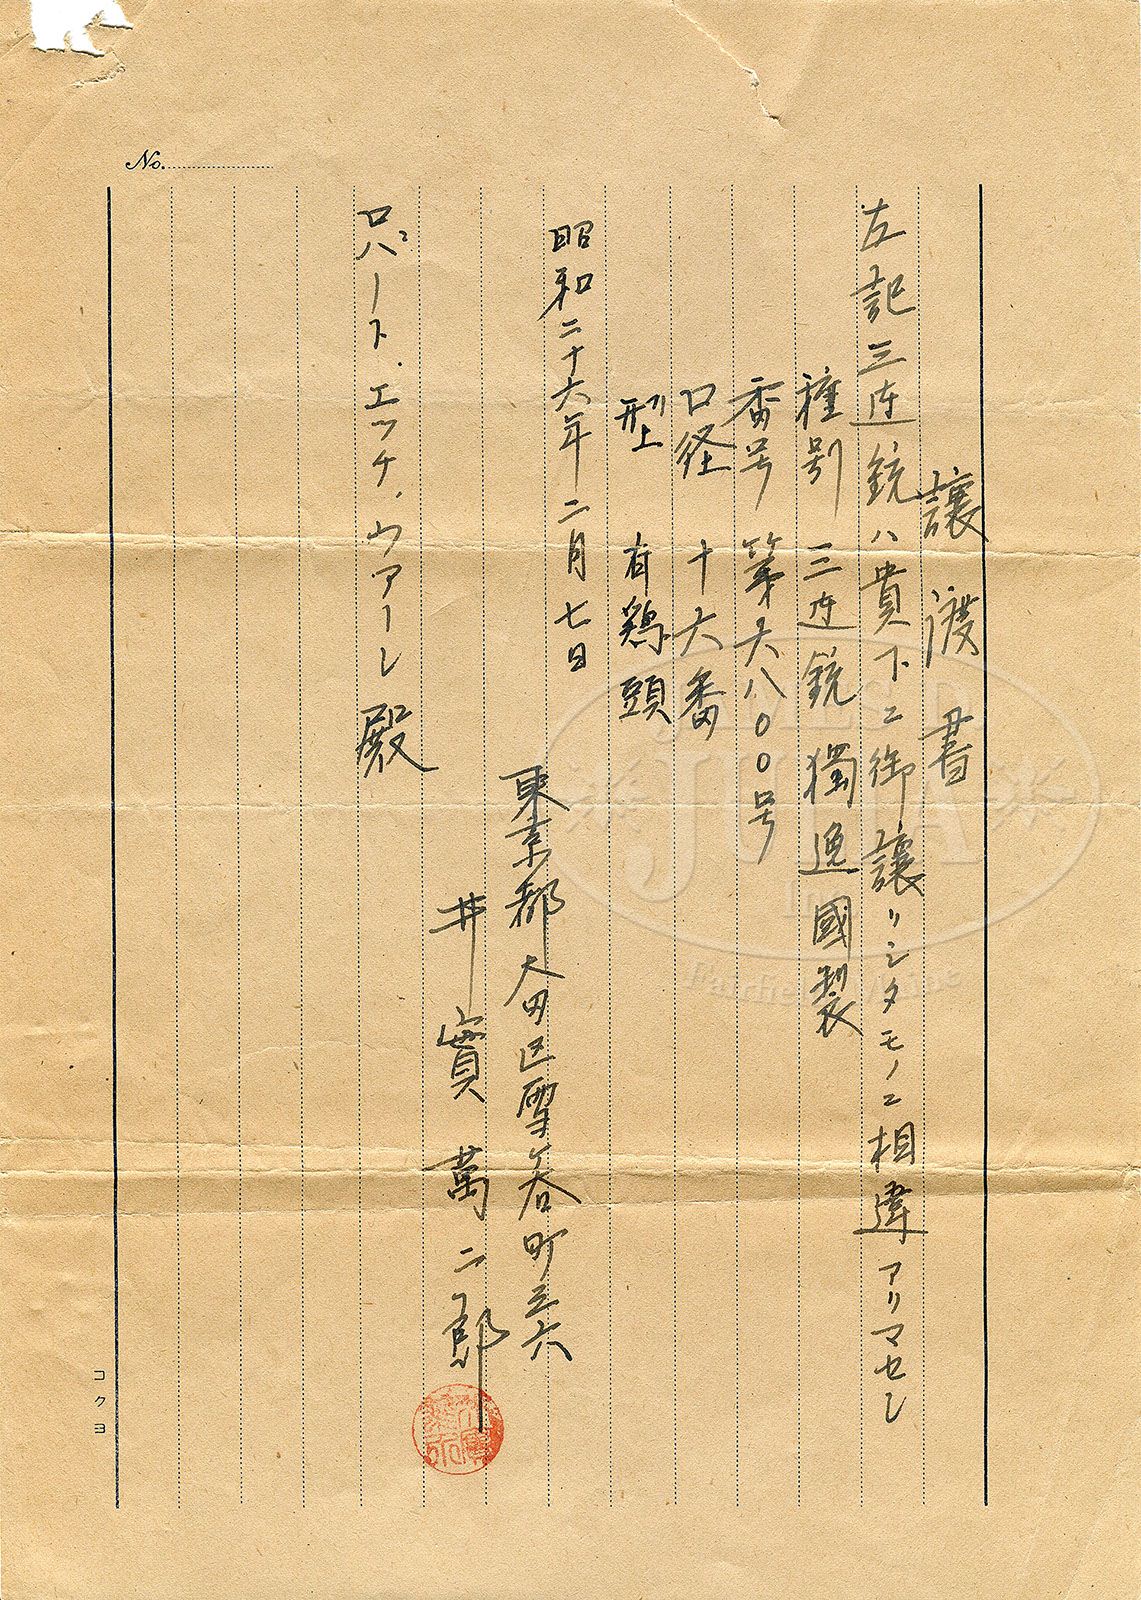 No.
譲渡書
左記三連銃ハ貴下ニ御譲リシタモノニ相違アリマセン
種別 三連銃獨逸國製
番号 第六八〇〇号
口径 十六番
型 有鶏頭
昭和二十六年二月七日
東京都大田区雪谷町三六
井實萬二郎
ロバート.エッチ.ウアーレ殿
コクヨ
JAMES D.
JULIA
Fairfield, Maine